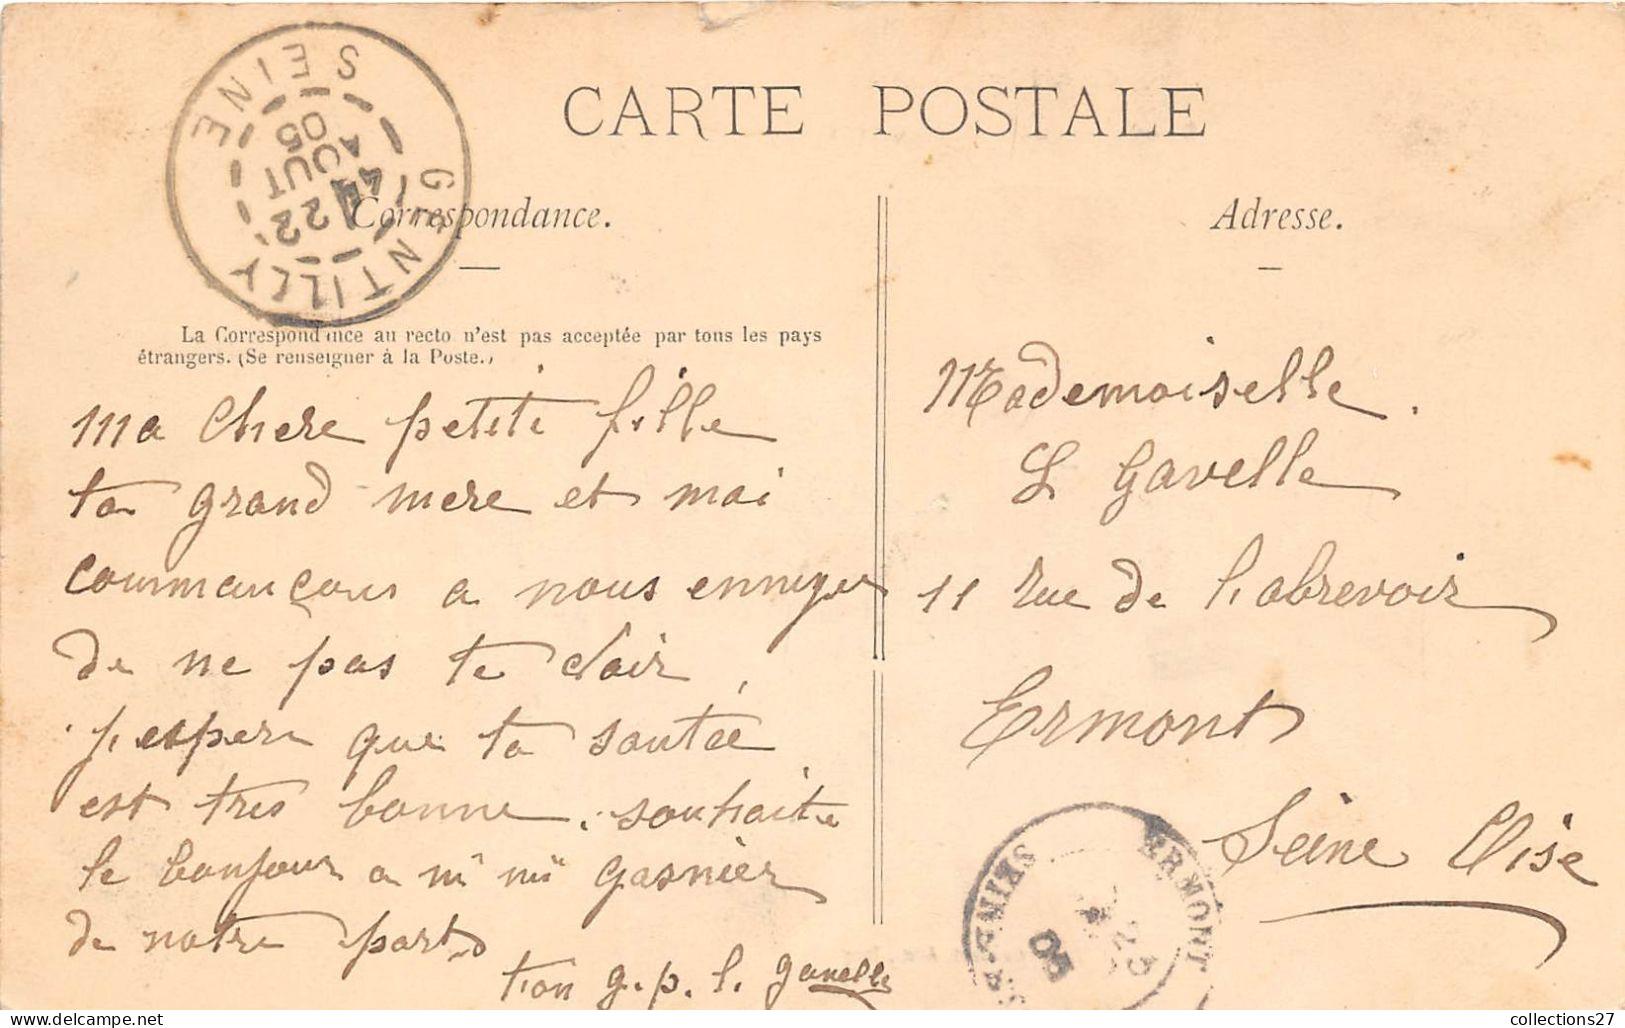 CARTE POSTALE
Correspondance.
Adresse.
GENTILLY
SEINE
4
22
AOUT
05
La Correspondance au recto n'est pas acceptée par tous les pays
étrangers. (Se renseigner à la Poste.)
ma chere petite fille
ta grand mere et moi
commançons a nous ennuyer
de ne pas te voir,
j'espere que ta santée
est tres bonne. souhaite
le bonjour a Gasnier
de notre part
ton g.p. L. Gavelle
Mademoiselle.
L Gavelle
11 rue de l'abrevoir
Ermont
Seine Oise
ERMONT
SEINE-&-
05
collections27